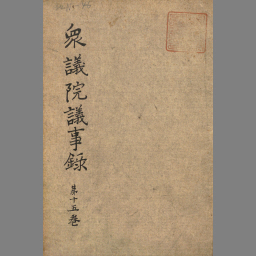 衆議院議事錄
第十五卷